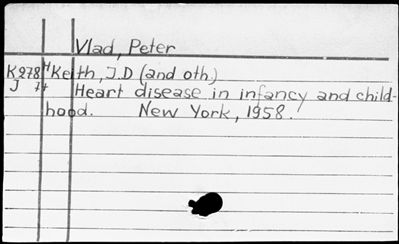 Vlad, Peter
K278 H Keith, J.D (and oth.)
J 7+ Heart disease in infancy and child-
hood. New York, 1958.